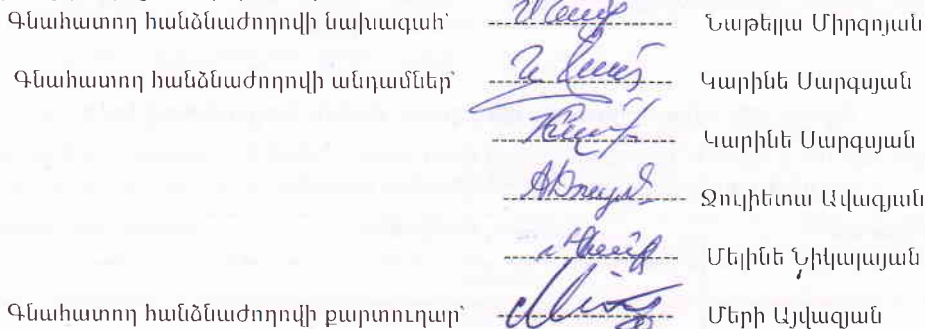 Գնահատող հանձնաժողովի նախագահ՝ Նաթելլա Միրզոյան
Գնահատող հանձնաժողովի անդամներ՝ Կարինե Սարգսյան
Կարինե Սարգսյան
Ջուլիետա Ավագյան
Մելինե Նիկալայան
Գնահատող հանձնաժողովի քարտուղար՝ Մերի Այվազյան